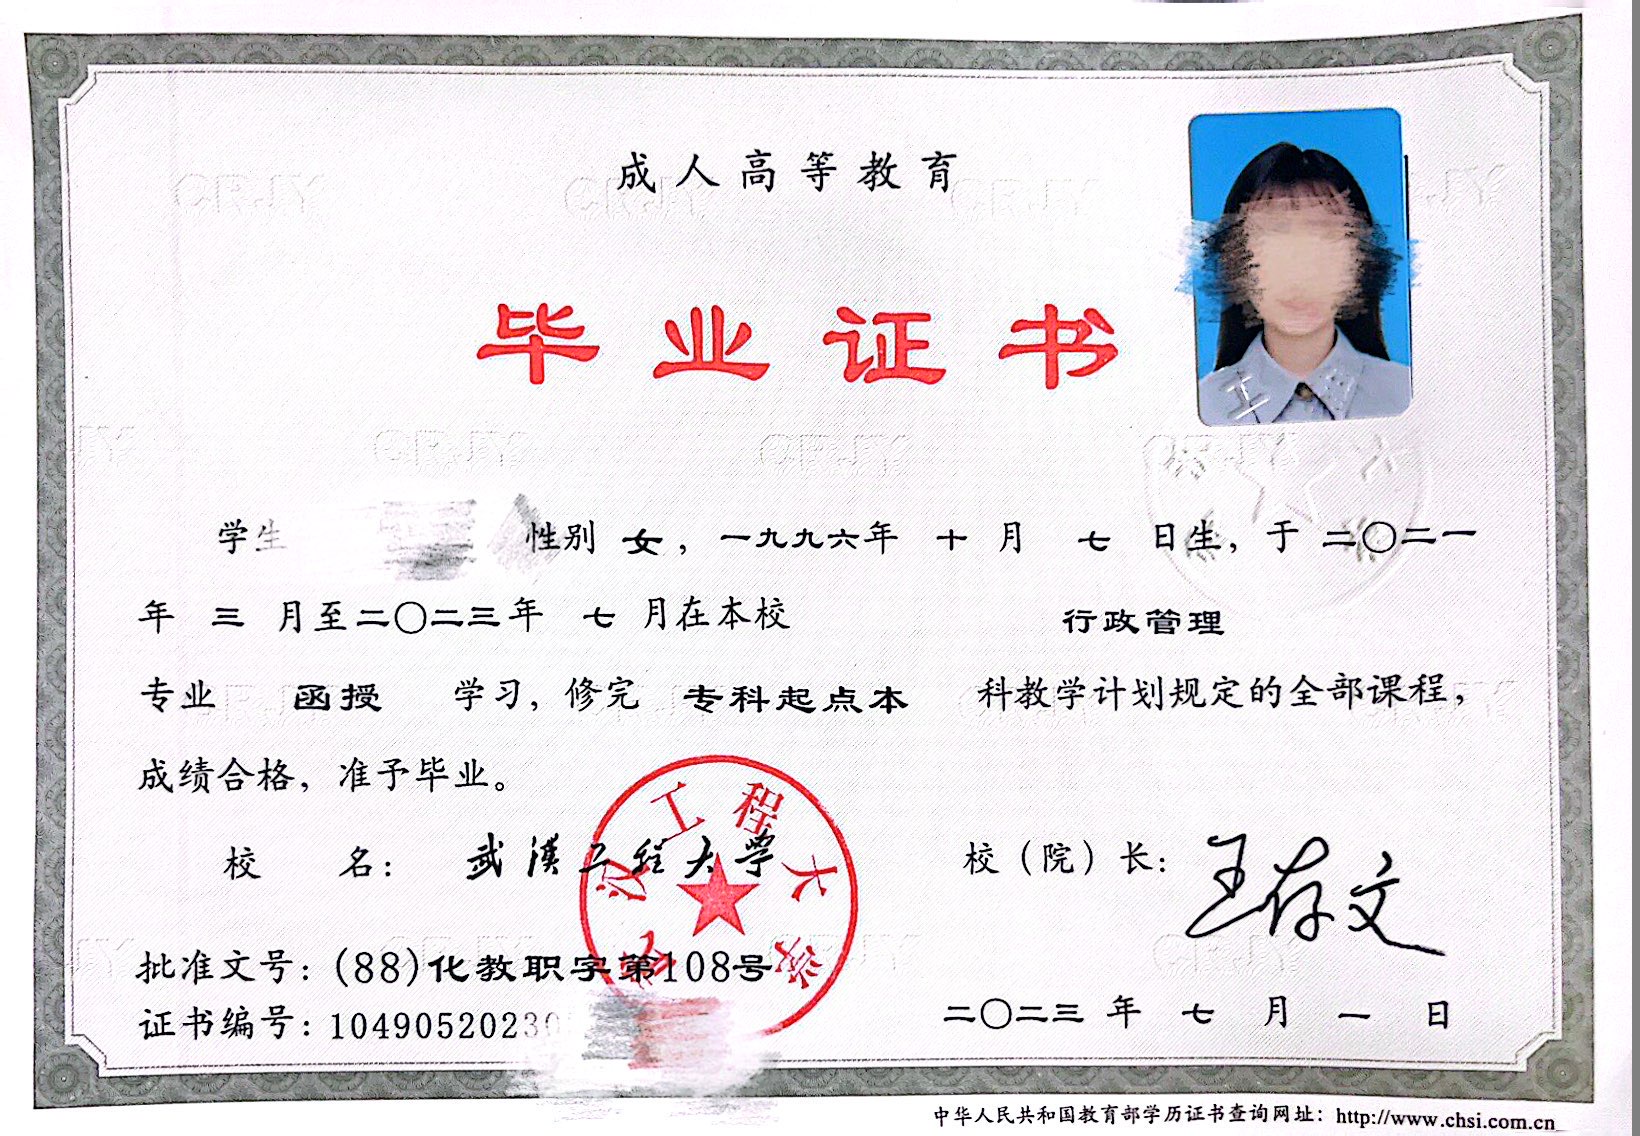 成人高等教育
毕业证书
学生 性别 女，一九九六年 十 月 七 日生，于 二〇二一
年 三 月至二〇二三年 七 月在本校 行政管理
专业 函授 学习，修完 专科起点本 科教学计划规定的全部课程，
成绩合格，准予毕业。
校 名：武漢工程大学 校（院）长：王存文
批准文号：(88)化教职字第108号
证书编号：10490520230
二〇二三 年 七 月 一 日
武汉工程大学
中华人民共和国教育部学历证书查询网址：http://www.chsi.com.cn
CRJY CRJY CRJY CRJY
CRJY CRJY CRJY CRJY
CRJY CRJY CRJY
CRJY CRJY CRJY CRJY